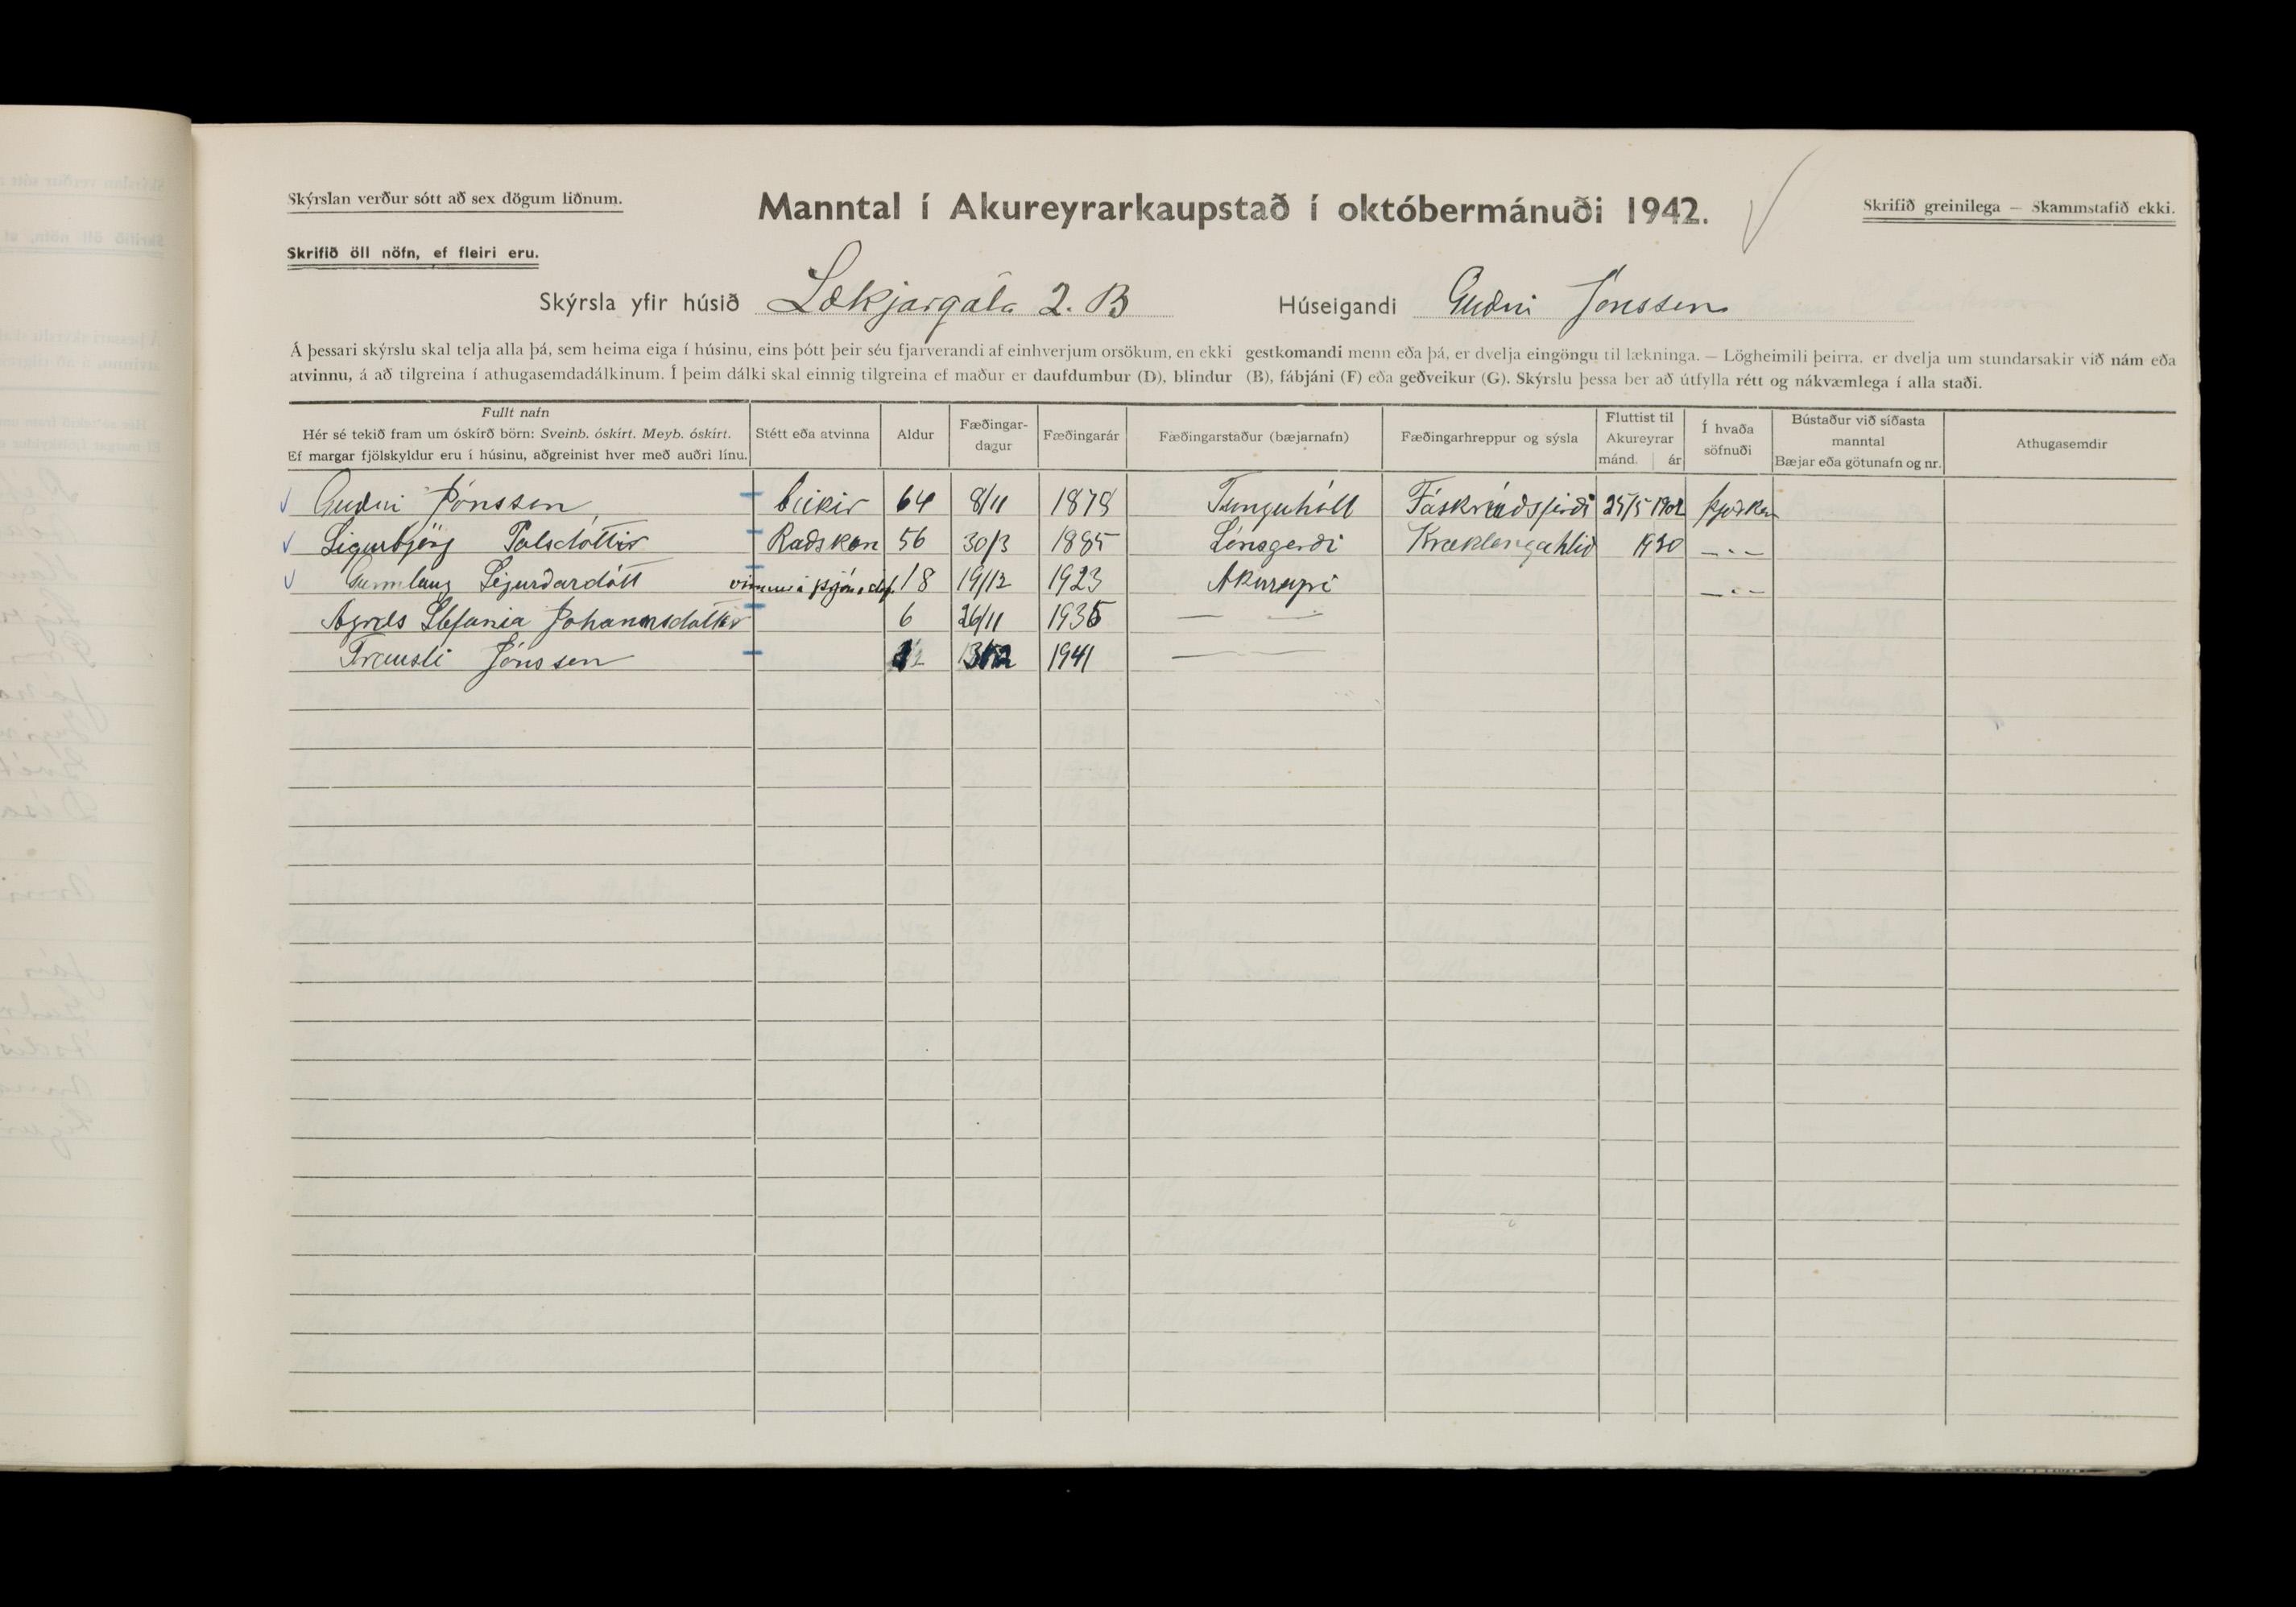 Skýrslan verður sótt að sex dögum liðnum.
Manntal í Akureyrarkaupstað í októbermánuði 1942.
Skrifið greinilega — Skammstafið ekki.
Skrifið öll nöfn, ef fleiri eru.
Skýrsla yfir húsið Lækjargata 2. B Húseigandi Guðni Jónsson
Á þessari skýrslu skal telja alla þá, sem heima eiga í húsinu, eins þótt þeir séu fjarverandi af einhverjum orsökum, en ekki gestkomandi menn eða þá, er dvelja eingöngu til lækninga. — Lögheimili þeirra, er dvelja um stundarsakir við nám eða
atvinnu, á að tilgreina í athugasemdadálkinum. Í þeim dálki skal einnig tilgreina ef maður er daufdumbur (D), blindur (B), fábjáni (F) eða geðveikur (G). Skýrslu þessa ber að útfylla rétt og nákvæmlega í alla staði.
Fullt nafn
Hér sé tekið fram um óskírð börn: Sveinb. óskírt. Meyb. óskírt.
Ef margar fjölskyldur eru í húsinu, aðgreinist hver með auðri línu.
Stétt eða atvinna
Aldur
Fæðingar-
dagur
Fæðingarár
Fæðingarstaður (bæjarnafn)
Fæðingarhreppur og sýsla
Fluttist til
Akureyrar
mánd. ár
Í hvaða
söfnuði
Bústaður við síðasta
manntal
Bæjar eða götunafn og nr.
Athugasemdir
Guðni Jónsson 64 8/11 1878 Tunguhóll Fáskrúðsfirði 25/5 1902 þjóðken
Sigurbjörg Palsdóttir Raðskon 56 30/3 1885 Lónsgerði Kræklengahlið 1930 — . —
Gunnlaug Sigurðardótt 18 19/12 1923 Akureyri — . —
Agnes Stefania Johannsdóttir 6 26/11 1935 — —
Trausti Jónsson 1941 — —